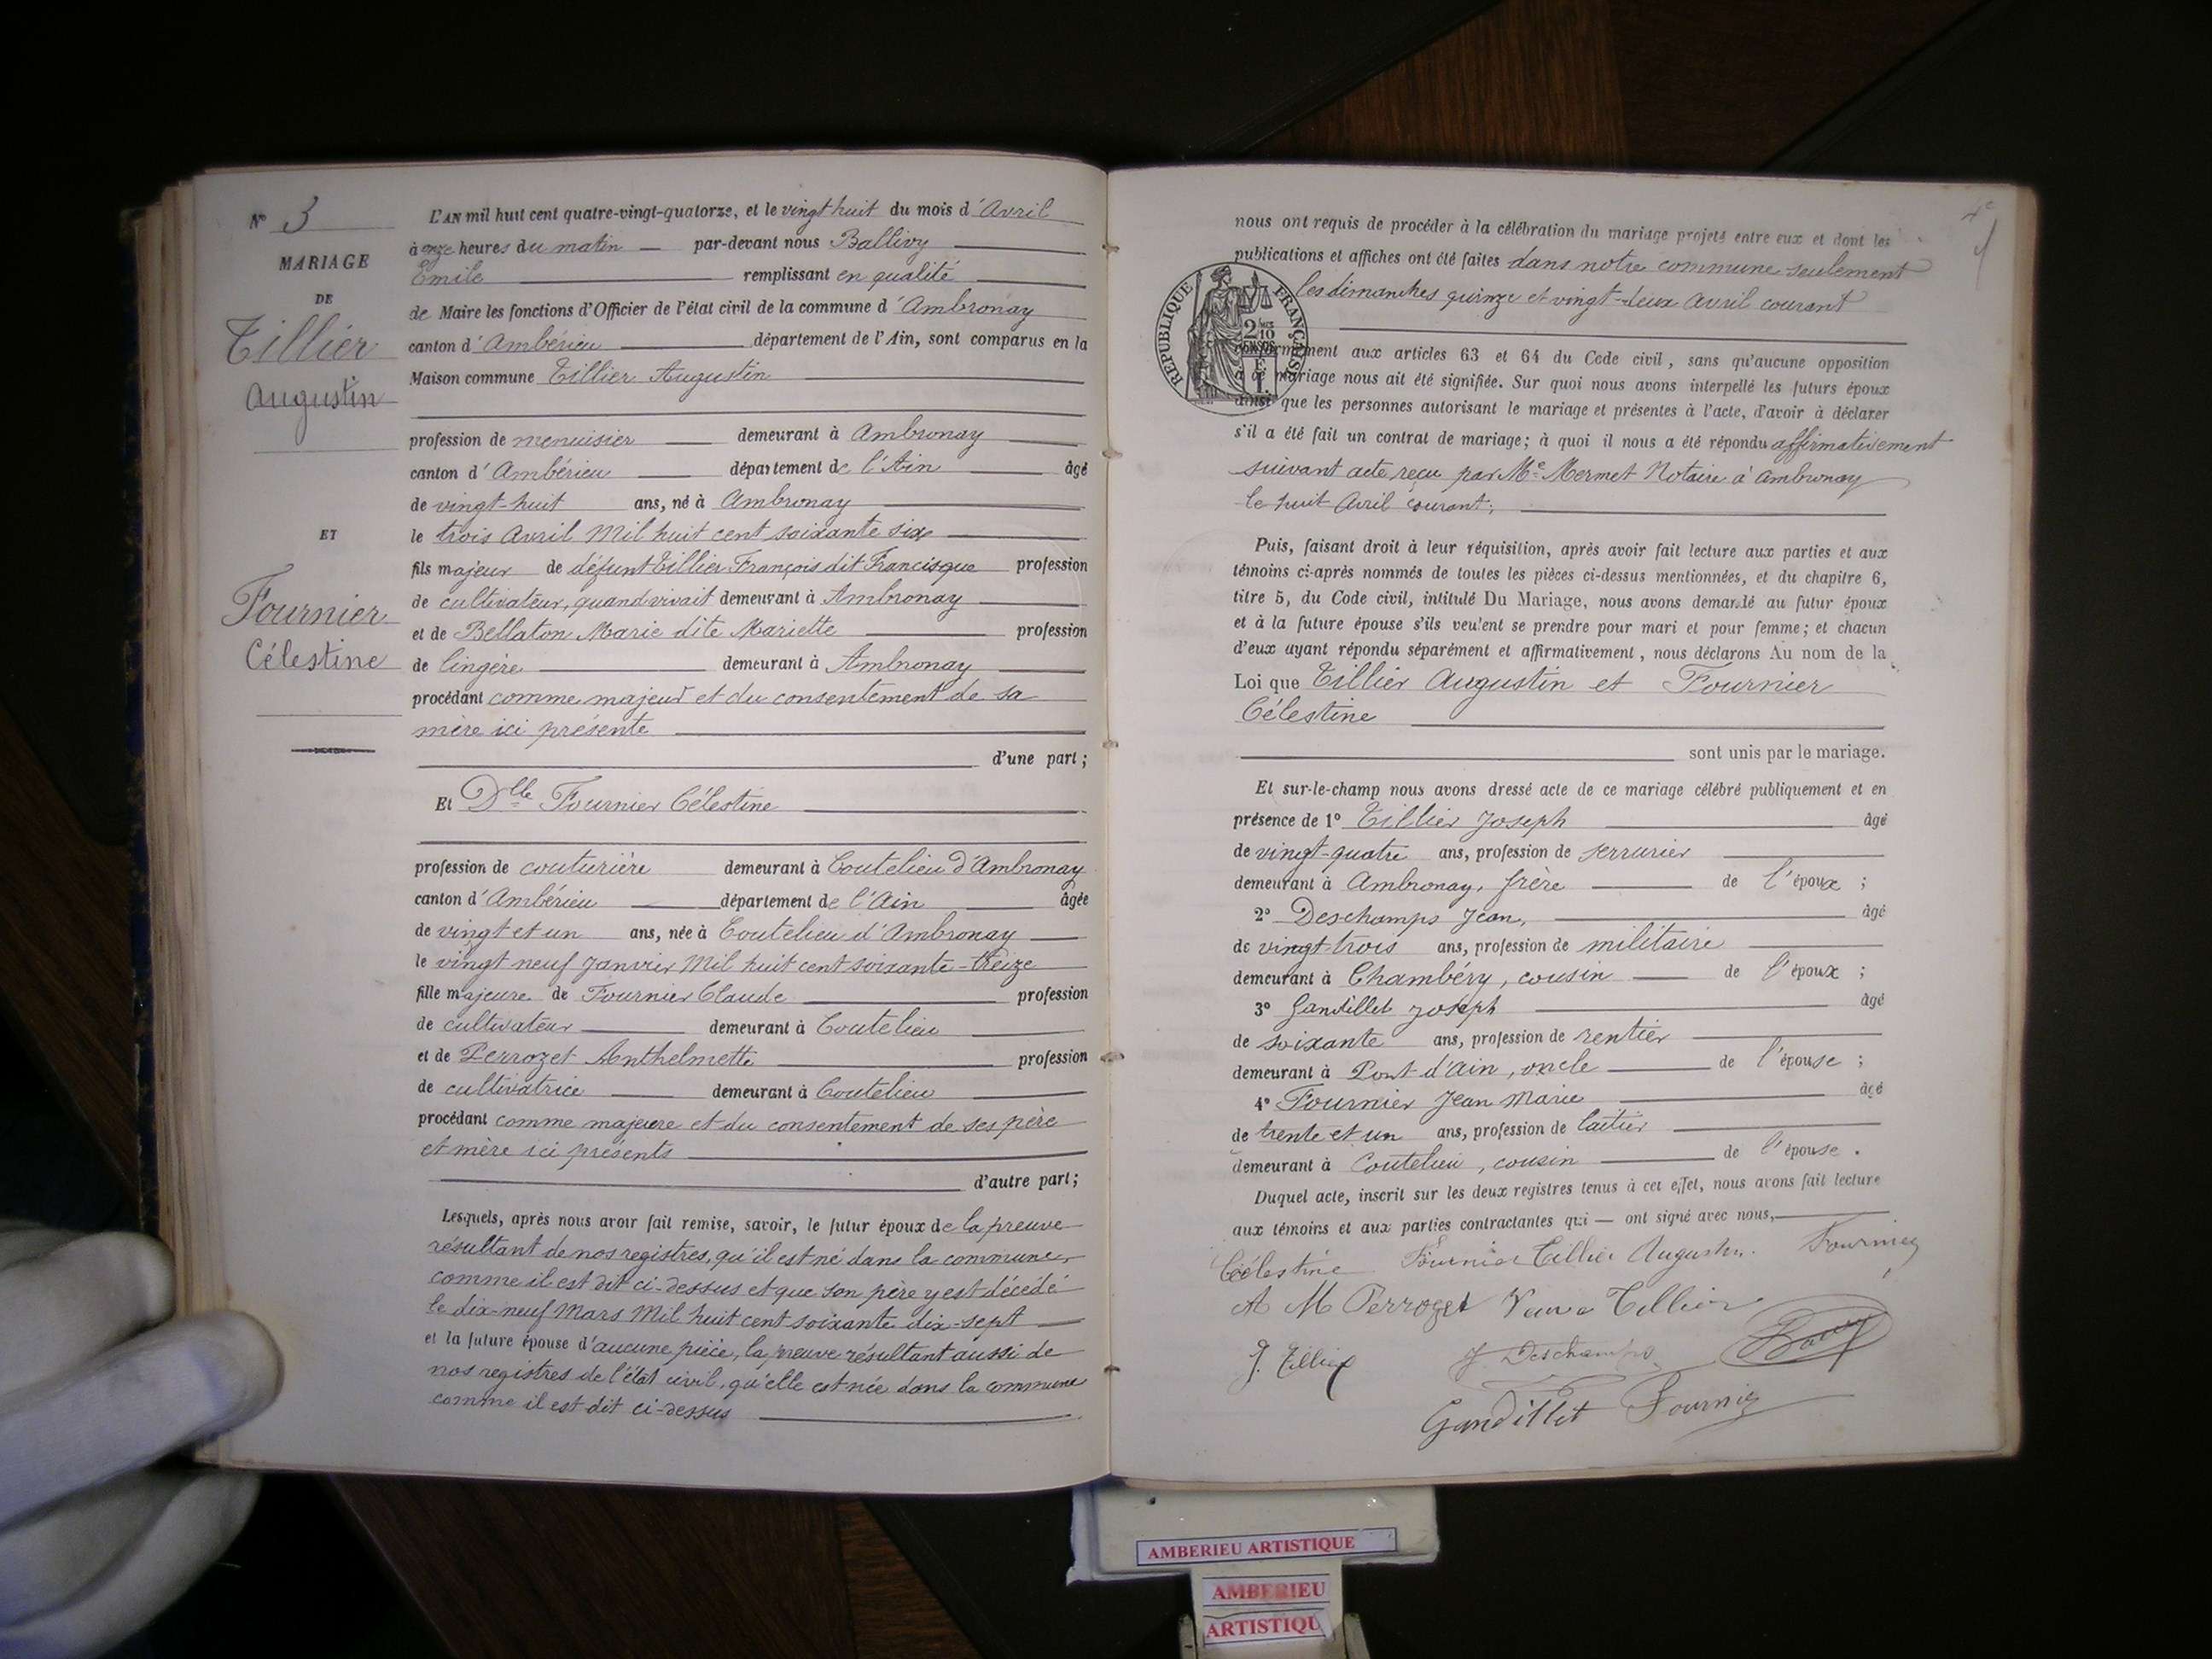 N° 3
MARIAGE
DE
Tillier
Augustin
ET
Fournier
Célestine
L'AN mil huit cent quatre-vingt-quatorze, et le vingt huit du mois d'Avril
à onze heures du matin par-devant nous Ballivy
Emile remplissant en qualité
de Maire les fonctions d'Officier de l'état civil de la commune d'Ambronay
canton d'Ambérieu département de l'Ain, sont comparus en la
Maison commune Tillier Augustin
profession de menuisier demeurant à Ambronay
canton d'Ambérieu département de l'Ain âgé
de vingt-huit ans, né à Ambronay
le trois Avril Mil huit cent soixante six
fils majeur de défunt Tillier François dit Francisque profession
de cultivateur, quand vivait demeurant à Ambronay
et de Bellaton Marie dite Mariette profession
de lingère demeurant à Ambronay
procédant comme majeur et du consentement de sa
mère ici présente
d'une part;
Et Dlle Fournier Célestine
profession de couturière demeurant à Coutelieu d'Ambronay
canton d'Ambérieu département de l'Ain âgée
de vingt et un ans, née à Coutelieu d'Ambronay
le vingt neuf Janvier Mil huit cent soixante-treize
fille majeure de Fournier Claude profession
de cultivateur demeurant à Coutelieu
et de Perrozet Anthelmette profession
de cultivatrice demeurant à Coutelieu
procédant comme majeure et du consentement de ses père
et mère ici présents
d'autre part;
Lesquels, après nous avoir fait remise, savoir, le futur époux de la preuve
résultant de nos registres, qu'il est né dans la commune,
comme il est dit ci-dessus et que son père y est décédé
le dix-neuf Mars Mil huit cent soixante dix-sept
et la future épouse d'aucune pièce, la preuve résultant aussi de
nos registres de l'état civil, qu'elle est née dans la commune
comme il est dit ci-dessus
nous ont requis de procéder à la célébration du mariage projeté entre eux et dont les
publications et affiches ont été faites dans notre commune seulement
les dimanches quinze et vingt-deux avril courant
RÉPUBLIQUE FRANÇAISE
conformément aux articles 63 et 64 du Code civil, sans qu'aucune opposition
à ce mariage nous ait été signifiée. Sur quoi nous avons interpellé les futurs époux
ainsi que les personnes autorisant le mariage et présentes à l'acte, d'avoir à déclarer
s'il a été fait un contrat de mariage; à quoi il nous a été répondu affirmativement
suivant acte reçu par Me Mermet Notaire à Ambronay
le huit Avril courant;
Puis, faisant droit à leur réquisition, après avoir fait lecture aux parties et aux
témoins ci-après nommés de toutes les pièces ci-dessus mentionnées, et du chapitre 6,
titre 5, du Code civil, intitulé Du Mariage, nous avons demandé au futur époux
et à la future épouse s'ils veulent se prendre pour mari et pour femme; et chacun
d'eux ayant répondu séparément et affirmativement, nous déclarons Au nom de la
Loi que Tillier Augustin et Fournier
Célestine
sont unis par le mariage.
Et sur-le-champ nous avons dressé acte de ce mariage célébré publiquement et en
présence de 1° Tillier Joseph âgé
de vingt-quatre ans, profession de serrurier
demeurant à Ambronay, frère de l'époux;
2° Deschamps Jean, âgé
de vingt-trois ans, profession de militaire
demeurant à Chambéry, cousin de l'époux;
3° Gandillet Joseph âgé
de soixante ans, profession de rentier
demeurant à Pont d'Ain, oncle de l'épouse;
4° Fournier Jean Marie âgé
de trente et un ans, profession de laitier
demeurant à Coutelieu, cousin de l'épouse.
Duquel acte, inscrit sur les deux registres tenus à cet effet, nous avons fait lecture
aux témoins et aux parties contractantes qui — ont signé avec nous,
Célestine Fournier Tillier Augustin. Fournier
A M Perrozet Veuve Tillier
J. Tillier J. Deschamps
Gandillet Fournier
AMBERIEU ARTISTIQUE
AMBERIEU
ARTISTIQU